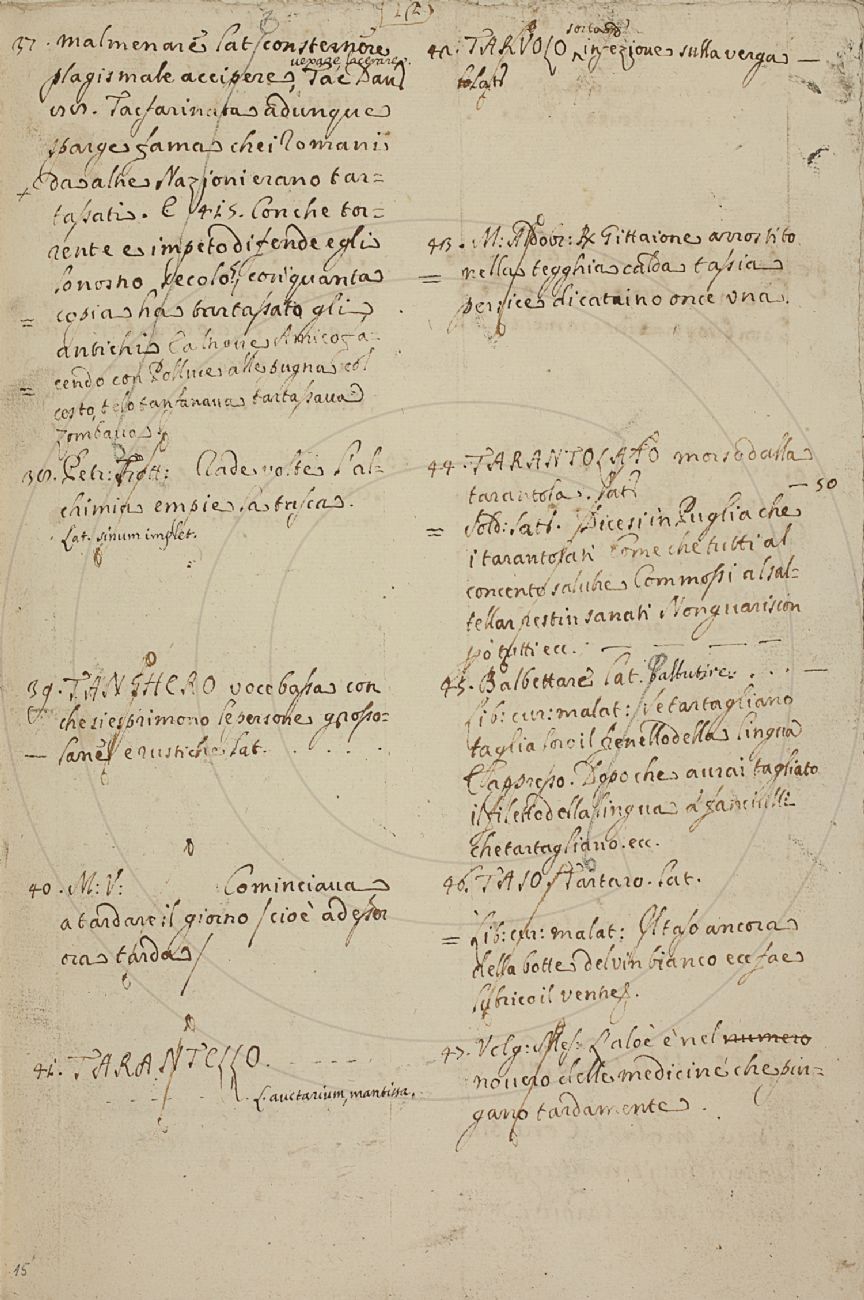 37. malmenare Lat. consternere
vexare, lacerare.
plagis male accipere, Tac Dau
Tacfarinata adunque
sparge fama che i Romani
da altre Nazioni erano tar=
tassati. E 415. Con che tor=
rente e impeto difende egli
lo nostro secolo, con quanta
cosia ha tartassato gli
antichi. Amico fa=
cendo con Polluce alle pugna col
costo, telo tanfanava tartassava
zombava
38. Petr: Frott: Rade volte l'al=
chimia empie la tasca.
Lat. sinum implet.
39. TANGHERO voce bassa con
che si esprimono le persone grosso=
lane, e rustiche Lat. . . . .
40. M: V: Cominciava
a tardare il giorno / cioè ad esser
ora tarda /
41. TARANTELLO. - - - -
L. auctarium, mantissa.
42. TARVOLO sorta d'
infezione sulla verga —
Lat.
43. M: Aldobr: Gittaione arrostito
= nella tegghia calda tassia
pernice di cataino once una.
44. TARANTOLATO morso dalla
tarantola. Lat. — 50
= Sold: Sat. Dicesi in Puglia che
i tarantolati come che tutti al
concento salubre Commossi al sal=
tellar restin sanati Non guariscon
pò tutti ecc. — — — —
45. Balbettare Lat. Balbutire. . . . —
Lib: cur: malat: Se tartagliano
taglia loro il fenello della lingua
E appresso. Dopo che aurai tagliato
il filetto della lingua a' fanciulli
che tartagliano. ecc.
46. TASO Tartaro. Lat.
= Lib: cur: malat: Il taso ancora
della botte del vin bianco ecc fae
lubrico il ventre.
47. Volg: Mes: L'aloè è nel numero
novero delle medicine che pur=
gano tardamente.
15